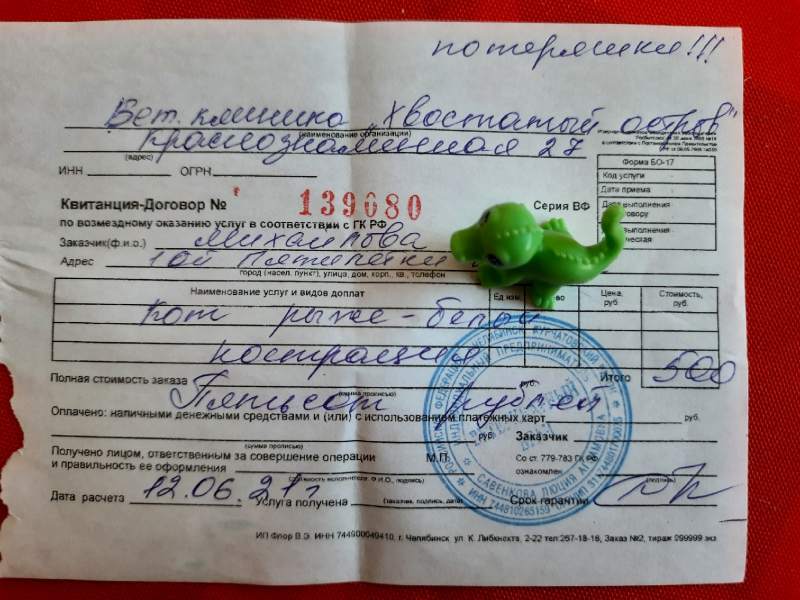 потеряшки!!!
Вет. клиника "Хвостатый остров"
(наименование организации)
Краснознаменная 27
(адрес)
ИНН ОГРН
Форма БО-17
Код услуги
Дата приема
Квитанция-Договор № 139080 Серия ВФ
по возмездному оказанию услуг в соответствии с ГК РФ
Заказчик(ф.и.о.) Михайлова
Адрес 10й Пятилетки
город (насел. пункт), улица, дом, корп., кв., телефон
Наименование услуг и видов доплат Ед.изм. Цена, руб. Стоимость, руб.
Кот рыже-белый
кастрация
Итого 500
Полная стоимость заказа Пятьсот рублей руб.
(сумма прописью)
Оплачено: наличными денежными средствами и (или) с использованием платежных карт руб.
руб. Заказчик
(сумма прописью)
Получено лицом, ответственным за совершение операции М.П. Со ст. 779-783 ГК РФ
и правильность ее оформления ознакомлен
(подпись)
Дата расчета 12.06.21г Услуга получена Срок гарантии
(заказчик, подпись, дата)
САВЕНКОВА ЛЮЦИЯ
ИП Флор В.Э. ИНН 744900049410, г. Челябинск ул. К. Либкнехта, 2-22 тел:267-18-16, Заказ №2, тираж 999999 экз